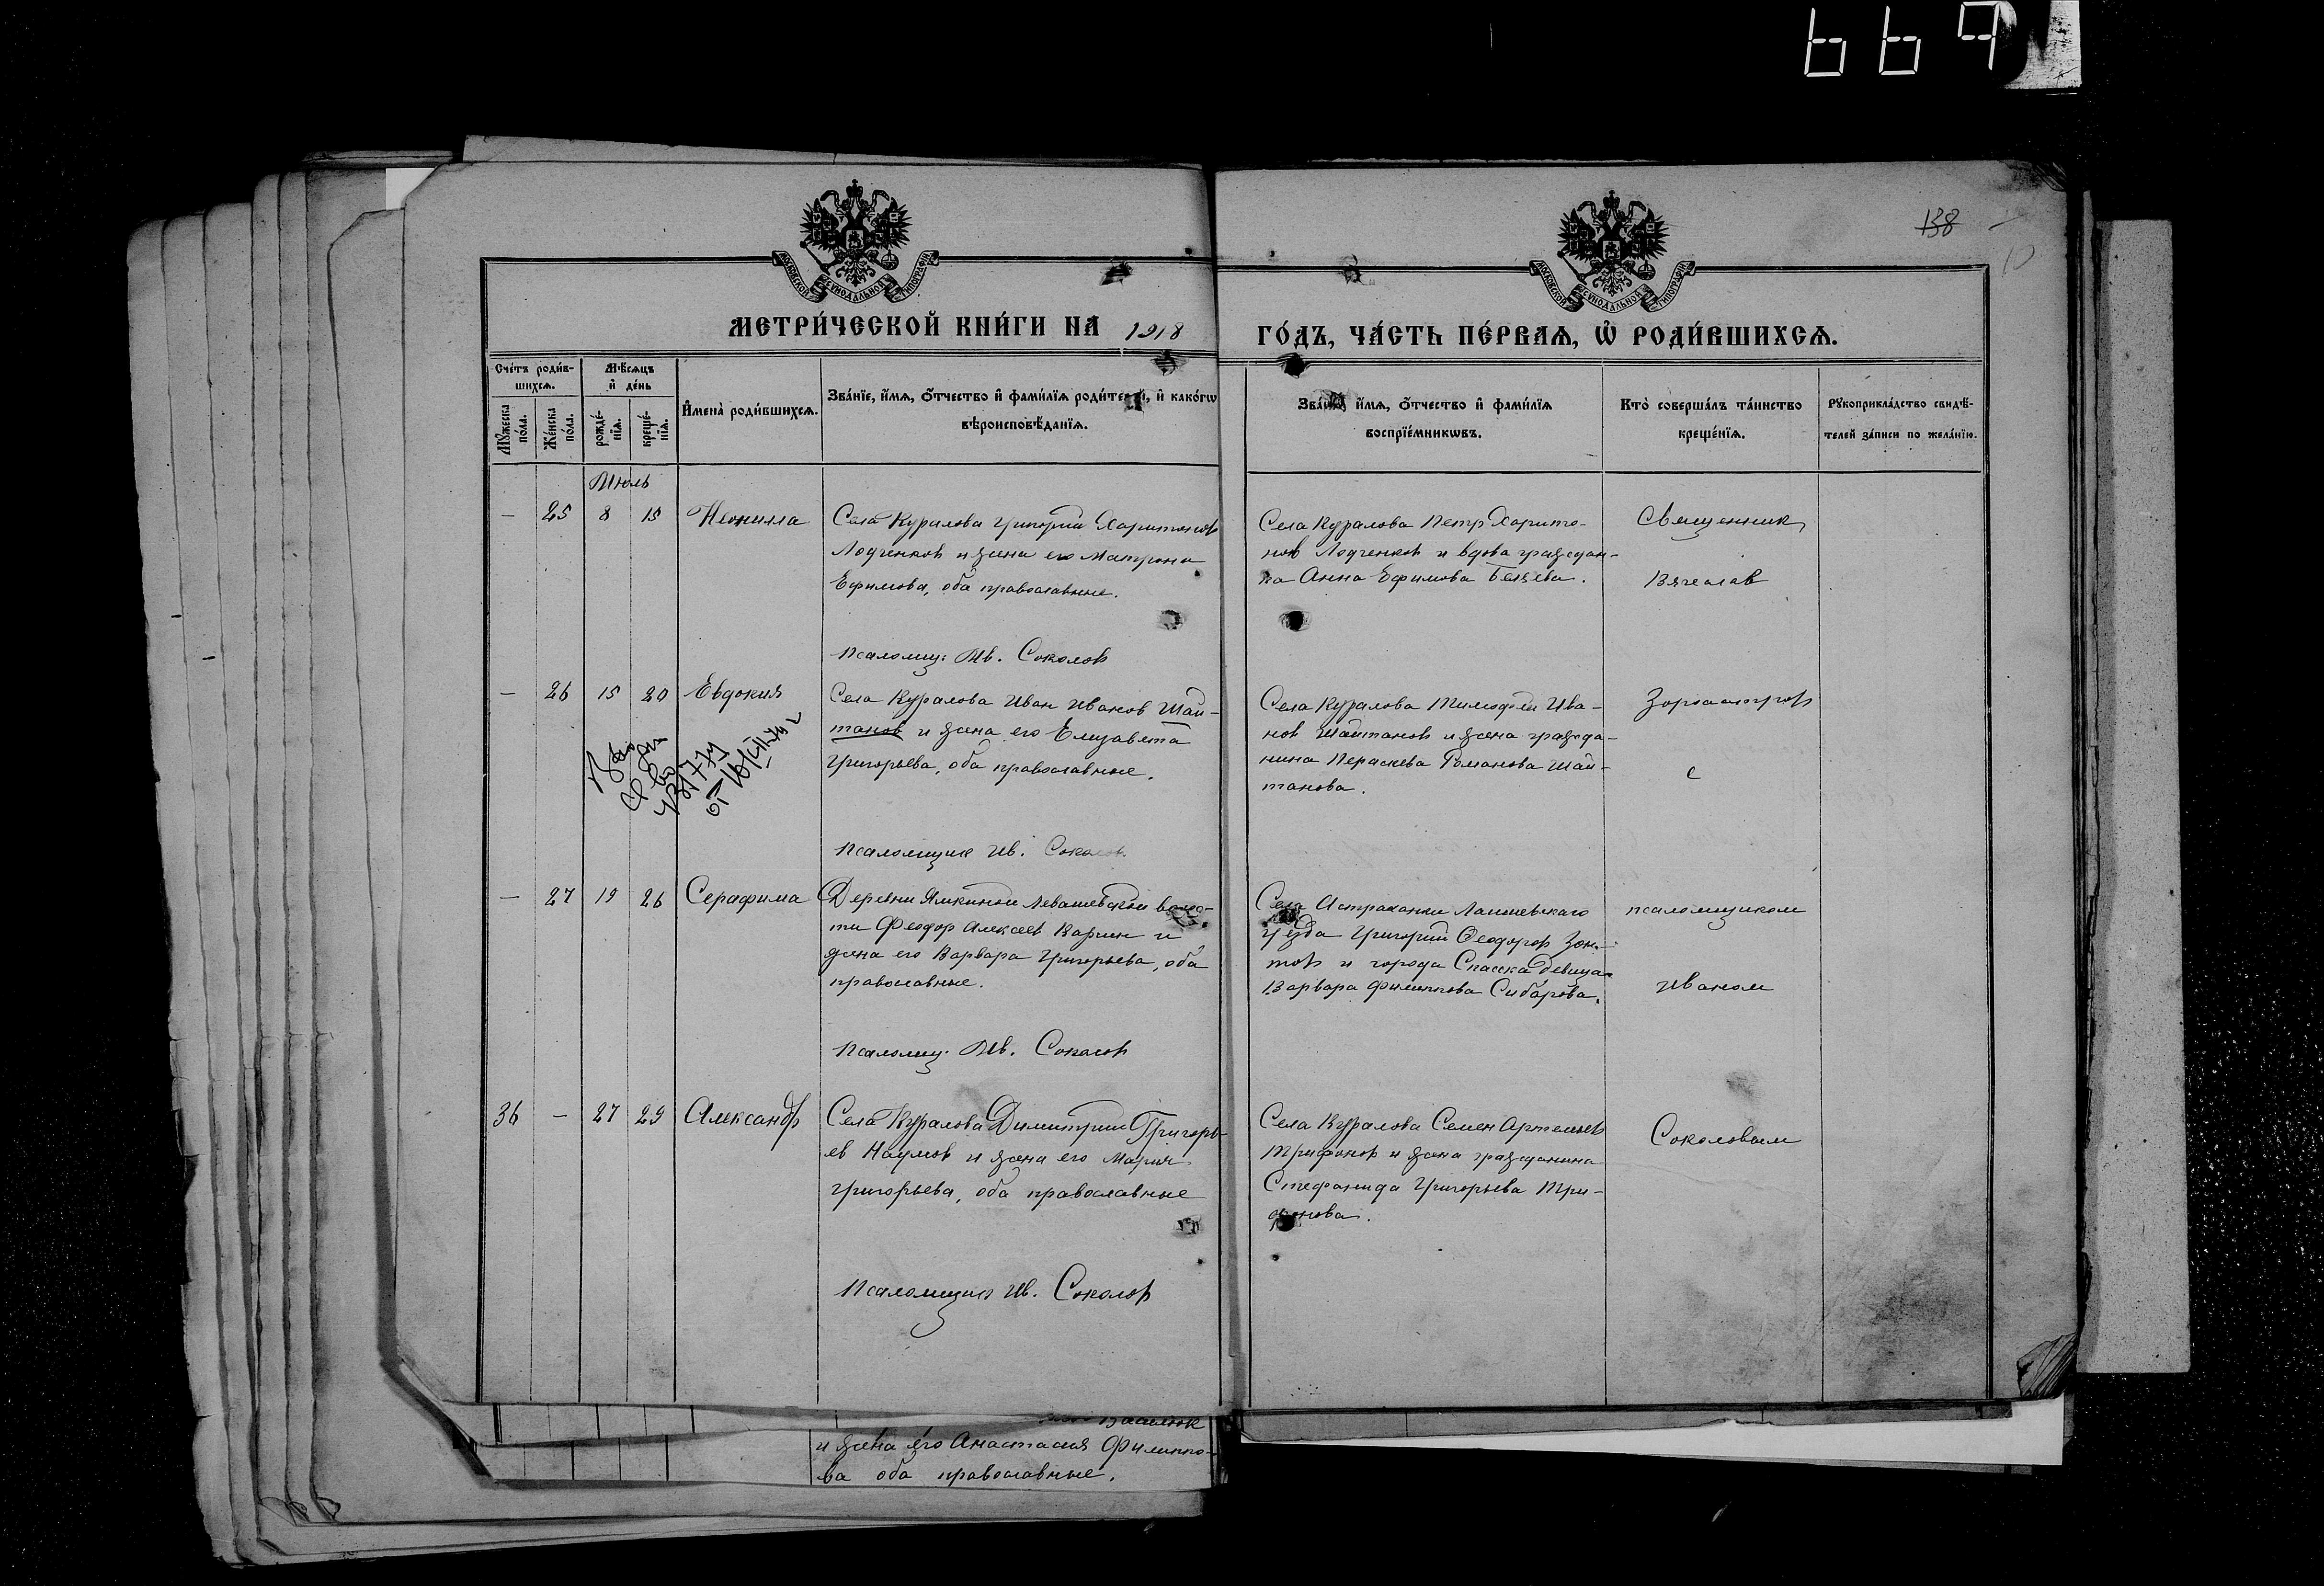 669
138
МОСКОВСКОЙ СѴНОДАЛЬНОЙ ТИПОГРАФІИ
МОСКОВСКОЙ СѴНОДАЛЬНОЙ ТИПОГРАФІИ
МЕТРИ́ЧЕСКОЙ КНИ́ГИ НА 1918
ГО́ДЪ, ЧА́СТЬ ПЕ́РВАѦ, Ѡ҆ РОДИ́ВШИХСѦ.
Сче́тъ роди́в-
шихсѧ.
Мѣ́сѧцъ
и҆ де́нь
Мꙋ́жеска
по́ла.
Же́нска
по́ла.
рожде́-
нїѧ.
креще́-
нїѧ.
И҆мена̀ роди́вшихсѧ.
Зва́нїе, и҆́мѧ, ѻ҆́тчество и҆ фами́лїѧ роди́телей, и҆ како́гѡ
вѣроисповѣ́данїѧ.
Зва́нїе, и҆́мѧ, ѻ҆́тчество и҆ фами́лїѧ
воспрїе́мникѡвъ.
Кто̀ соверша́лъ та́инство
креще́нїѧ.
Рꙋкоприкла́дство свидѣ́-
телей за́писи по жела́нїю.
Июль
— 25 8 15 Неонилла
Села Куралова Григорий Харитонов
Лодченков и жена его Матрона
Ефимова, оба православные.
Псаломщ: Ив. Соколов
Села Куралова Петр Харито-
нов Лодченков и вдова граждан-
ка Анна Ефимова
Священник
Вячеслав
— 26 15 20 Евдокия
Села Куралова Иван Иванов Шай-
танов и жена его Елизавета
Григорьева, оба православные.
Псаломщик Ив. Соколов
Села Куралова Тимофей Ива-
нов Шайтанов и жена гражда-
нина Параскева Романова Шай-
танова.
с
— 27 19 26 Серафима
Деревни Ямкиной Левашевской волос-
ти Феодор Алексеев Карпен и
жена его Варвара Григорьева, оба
православные.
Псаломщ. Ив. Соколов
Села Астраханки Лаишевскаго
уезда Григорий Феодоров
и города Спасска девица
Варвара Филиппова Сибарова.
псаломщиком
Иваном
36 — 27 29 Александр
Села Куралова Димитрий Григорь-
ев Наумов и жена его Мария
Григорьева, оба православные
Псаломщик Ив. Соколов
Села Куралова Семен Артемьев
Трифонов и жена гражданина
Стефанида Григорьева Три-
фонова.
Соколовым
и жена его Анастасия Филиппо-
ва оба православные.